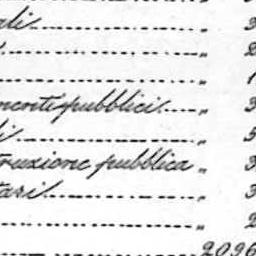 ali „ 3
„ 2
„ 1
menti pubblici „ 3
li „ 5
truzione pubblica „ 3
tari „ 3
„ 2
2096